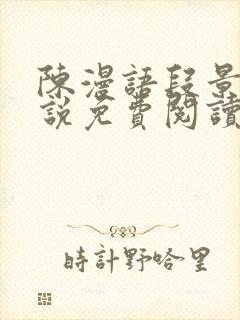 陳漫語段景
說免費閱讀
時計野哈里